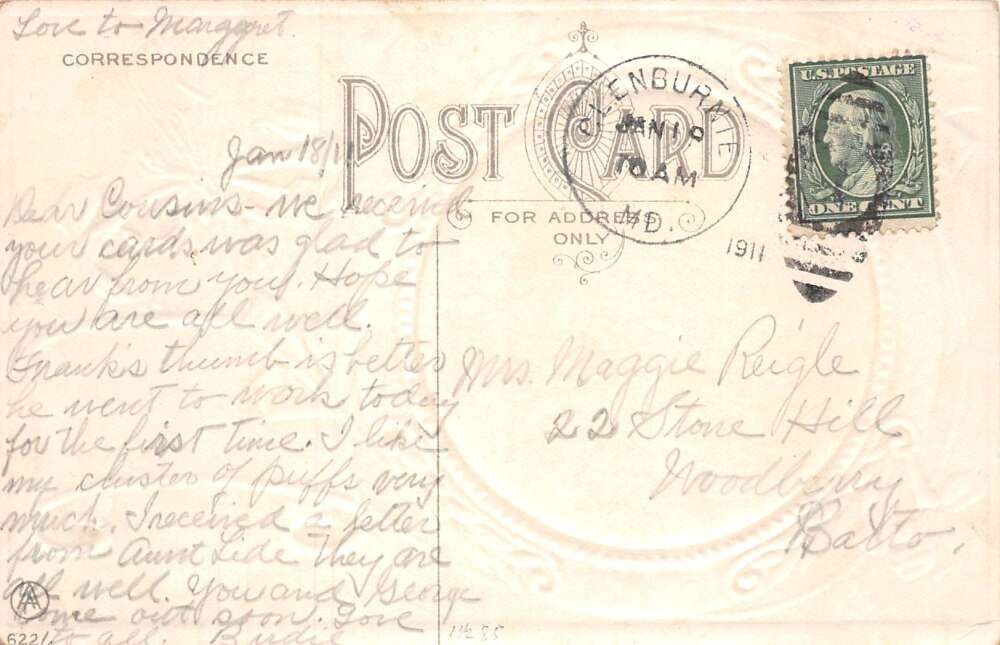 Love to Margaret.
CORRESPONDENCE
POST CARD
FOR ADDRESS
ONLY
GLENBURNIE
JAN 18
10 AM
MD.
1911
U.S. POSTAGE
ONE CENT
Jan 18/11
Dear Cousins - we received
your cards was glad to
hear from you. Hope
you are all well.
Frank's thumb is better
he went to work today
for the first time. I like
my cluster of puffs very
much. I received a letter
from Aunt Lide They are
all well. You and George
come out soon. Love
to all. Birdie
Mrs. Maggie Reigle
22 Stone Hill
Woodberry
Balto.
622/